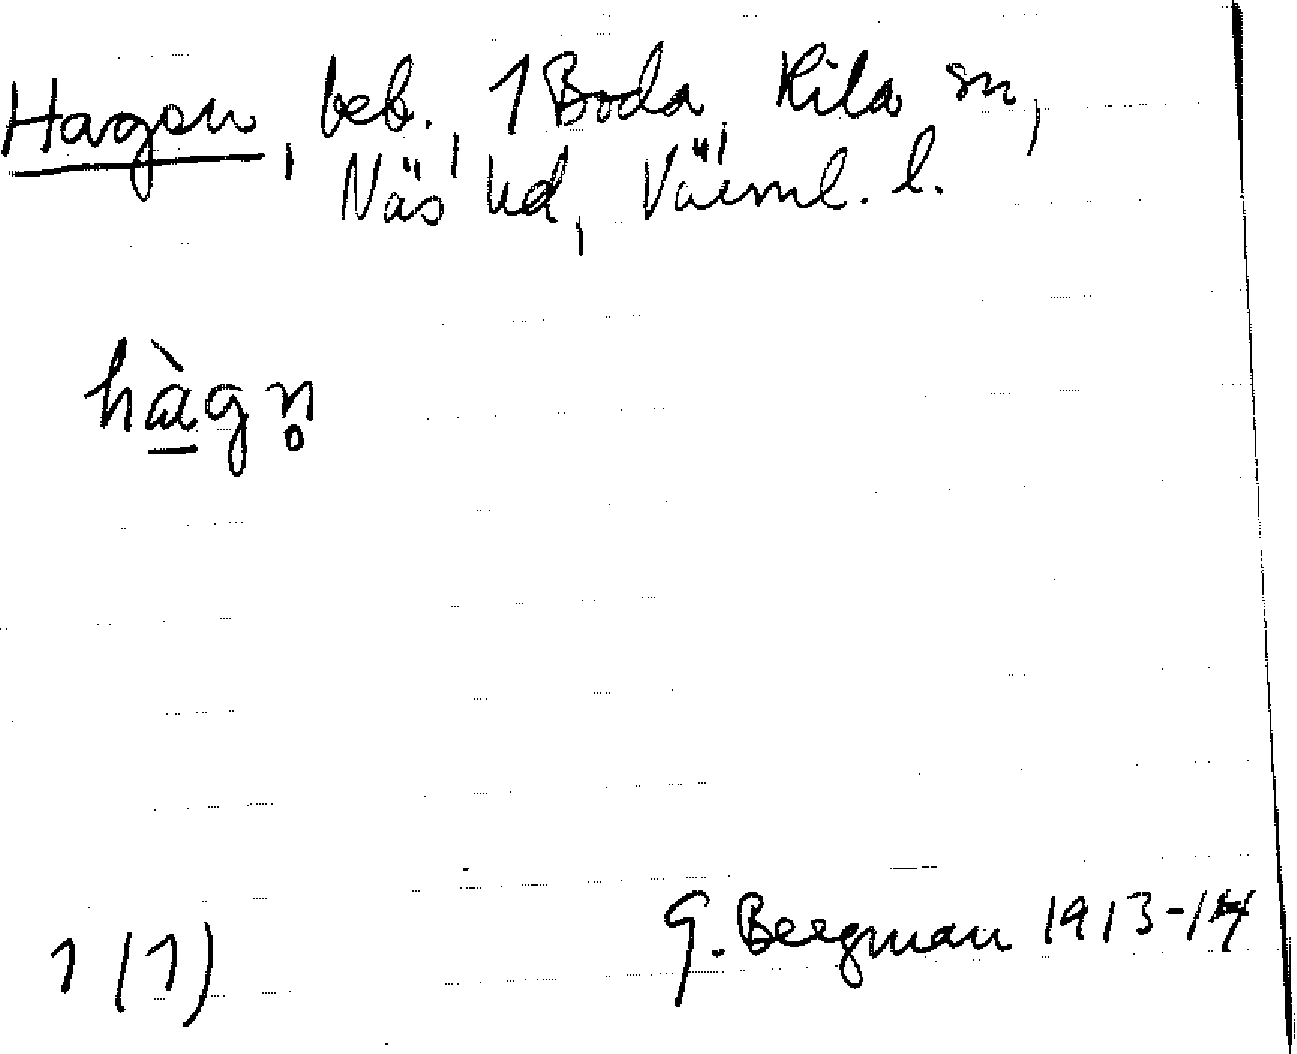 Hagen, beb., 1 Boda, Kila sn,
Näs hd, Värml. l.
hàgn̥
1 (1)
G. Bergman 1913-14